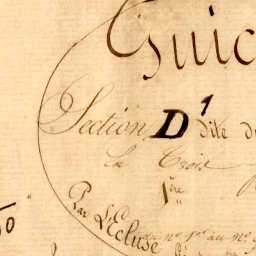 Guic
Section D¹ dite d
la Croix
1ère
Par L'Ecluse